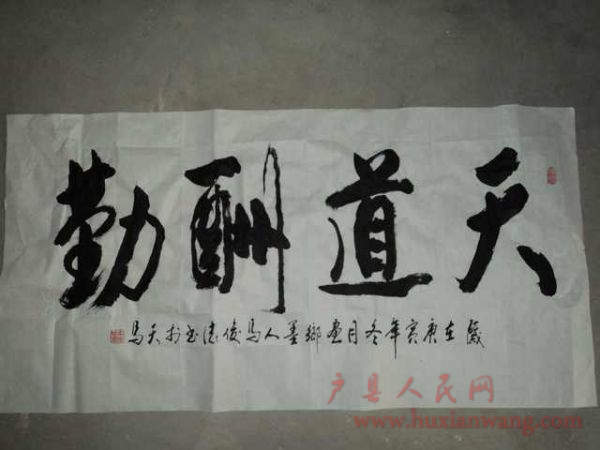 天道酬勤
歲在庚寅年冬月畫鄉墨人馬俊法书於天馬
户县人民网
www.huxianwang.com